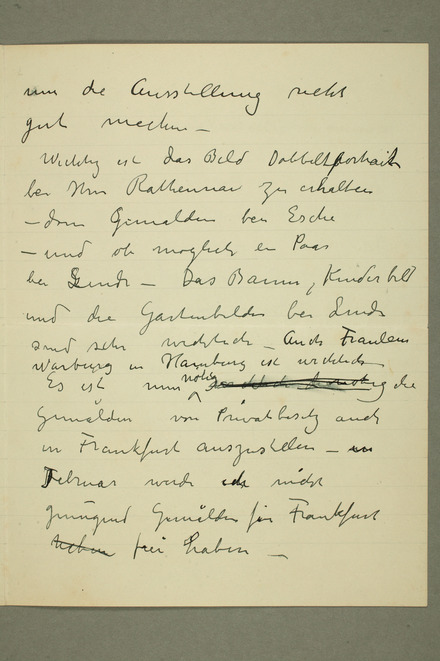 nun die Ausstellung recht
gut machen –
Wichtig ist das Bild Dobbeltportrait
bei Hrn Rathennau zu erhalten
– dann Gemalden bei Esche
– und ob moglich en Paar
bei Linde – Das Baum, Kinderbild
und die Gartenbilder bei Linde
sind sehr wichtich – Auch Fraulein
Warburg in Hamburg ist wichtich
Es ist nun nötig die
Gemälden von Privatbesitz auch
in Frankfurt auszustellen –
Februar werde ich nicht
genugend Gemälden für Frankfurt
frei haben –